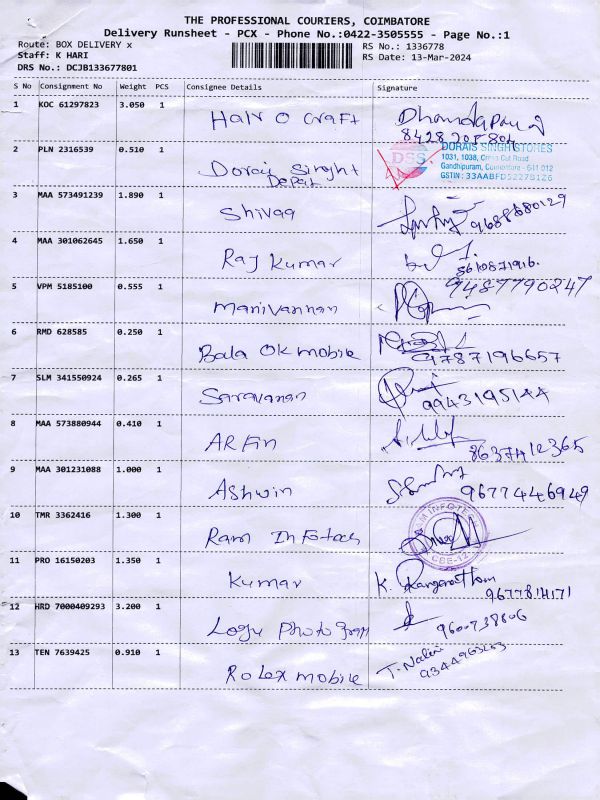 THE PROFESSIONAL COURIERS, COIMBATORE
Delivery Runsheet - PCX - Phone No.:0422-3505555 - Page No.:1
Route: BOX DELIVERY x
RS No.: 1336778
Staff: K HARI
RS Date: 13-Mar-2024
DRS No.: DCJB133677801
S No Consignment No Weight PCS Consignee Details Signature
1 KOC 61297823 3.050 1 Hair O Craft
8428205804
2 PLN 2316539 0.510 1 Dorai Singht
DSS DORAIS SINGH STORES
1031, 1038, Cross Cut Road
Gandhipuram, Coimbatore - 641 012
GSTIN : 33AABFD5227B126
3 MAA 573491239 1.890 1 Shivaa 9688680129
4 MAA 301062645 1.650 1 Raj Kumar
8610871916.
5 VPM 5185100 0.555 1 Manivannan 9487790247
6 RMD 628585 0.250 1 Bala Ok mobile
9787196657
7 SLM 341550924 0.265 1 Saravanan
9943195144
8 MAA 573880944 0.410 1 ARFin
8637412365
9 MAA 301231088 1.000 1 Ashwin
9677446949
10 TMR 3362416 1.300 1 Ram Infotech
RAM INFOTECH
CBE-12
11 PRO 16150203 1.350 1 Kumar K. Ranganathan
9677814171
12 HRD 7000409293 3.200 1 Logu Photo
9600738806
13 TEN 7639425 0.910 1 Rolex mobile T. Nalini